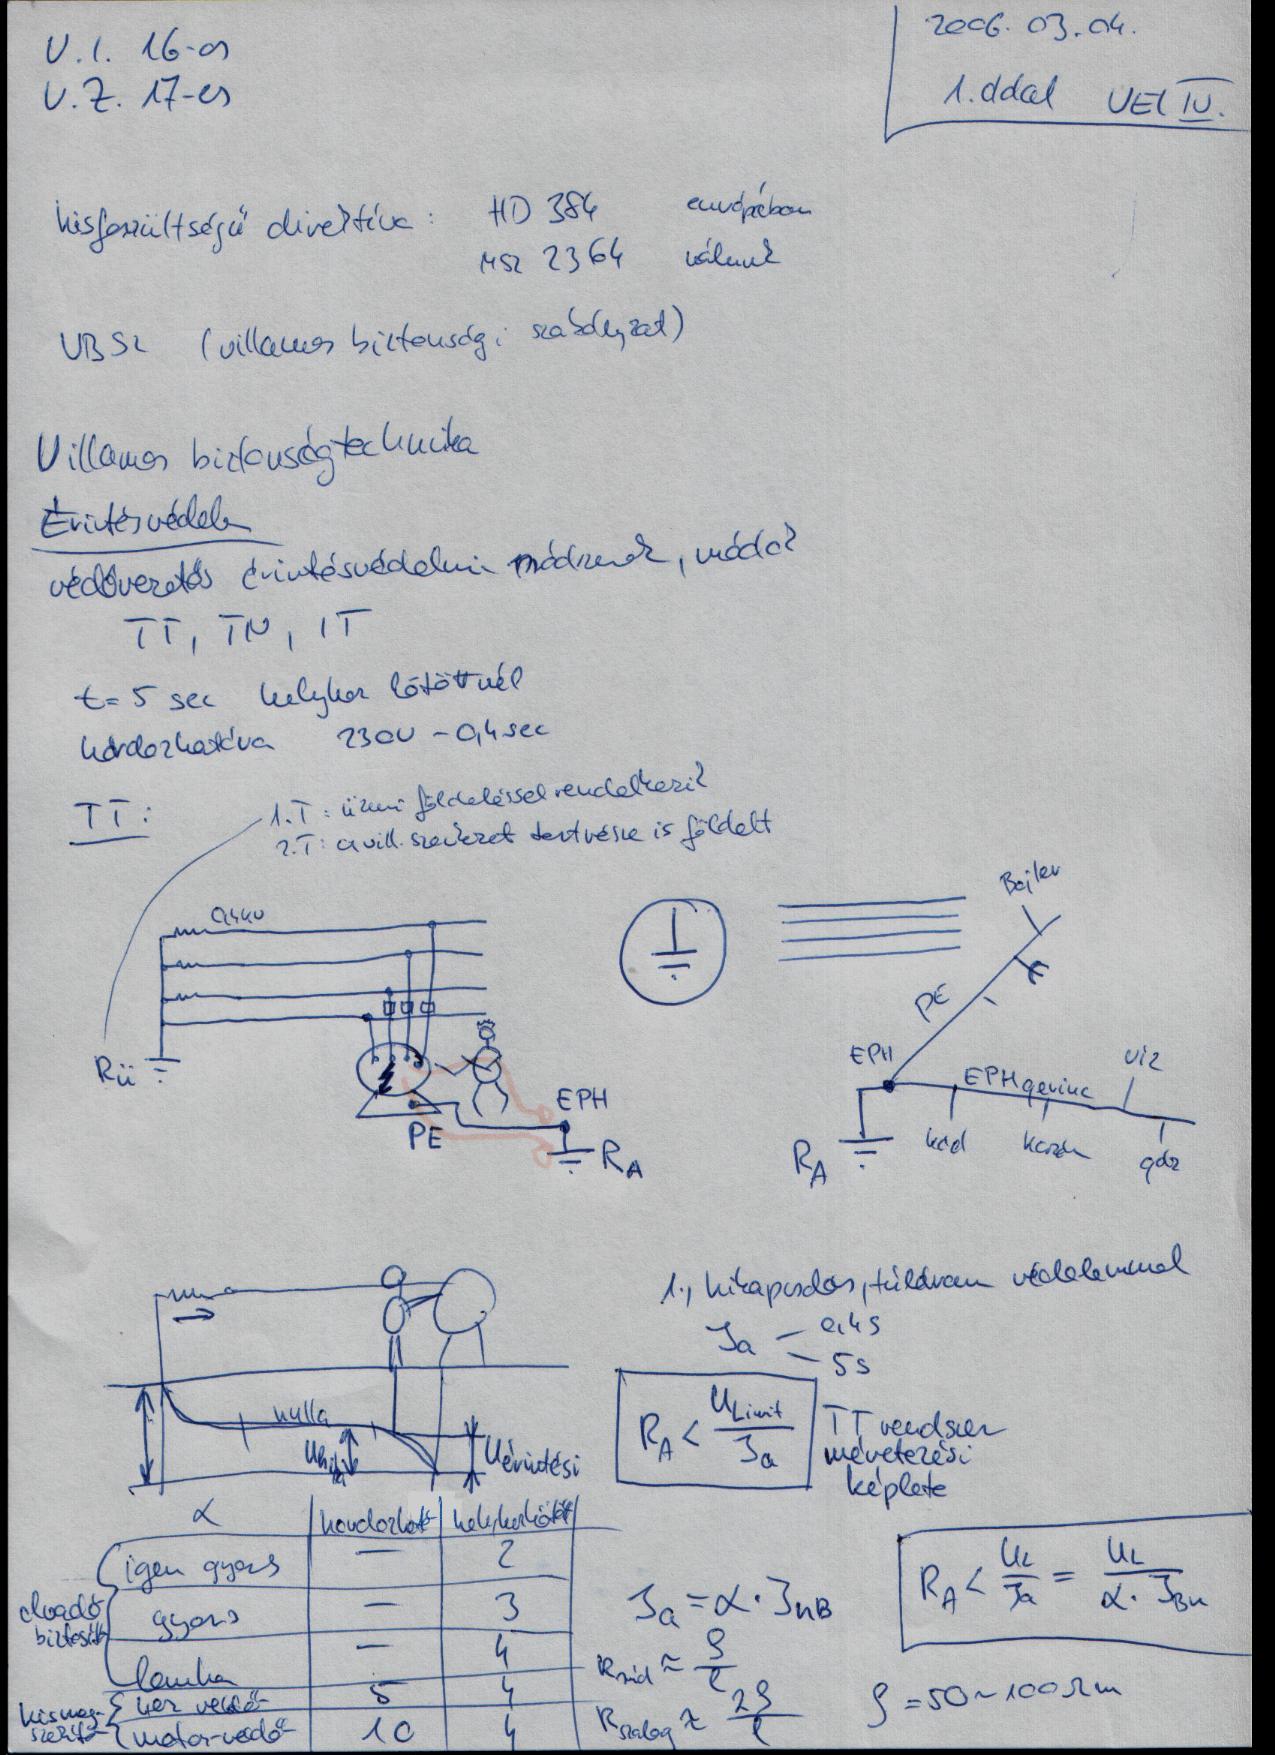 V.1. 16-os
V.Z. 17-es
2006. 03. 04.
1. oldal VET IV.
kisfeszültségű direktíva: HD 384 európában
MSZ 2364 nálunk
VBSZ (villamos biztonsági szabályzat)
Villamos biztonságtechnika
Érintésvédelem
védővezetős érintésvédelmi módszerek, módok
TT, TN, IT
t = 5 sec helyhez kötöttnél
hordozhatóra 230V - 0,4 sec
TT:
1.T: üzemi földeléssel rendelkezik
2.T: a vill. szerkezet testrésze is földelt
0,4kV
Rü
PE
EPH
RA
Bojler
PE
EPH
EPH gerinc
víz
kád
gáz
RA
nulla
Uérintési
1., kikapcsolás, túláram védelemmel
Ja
0,4s
5s
RA < ULimit / Ja
TT rendszer
méretezési
képlete
α hordozható helyhezkötött
olvadó biztosító
igen gyors — 2
gyors — 3
lomha — 4
kismegszakító
kez védő 5 4
motor védő 10 4
Ja = α · JnB
RA < UL / Ja = UL / α · JBn
Rrúd ≈ ρ / l
Rszalag ≈ 2ρ / l
ρ = 50 ~ 100 Ωm